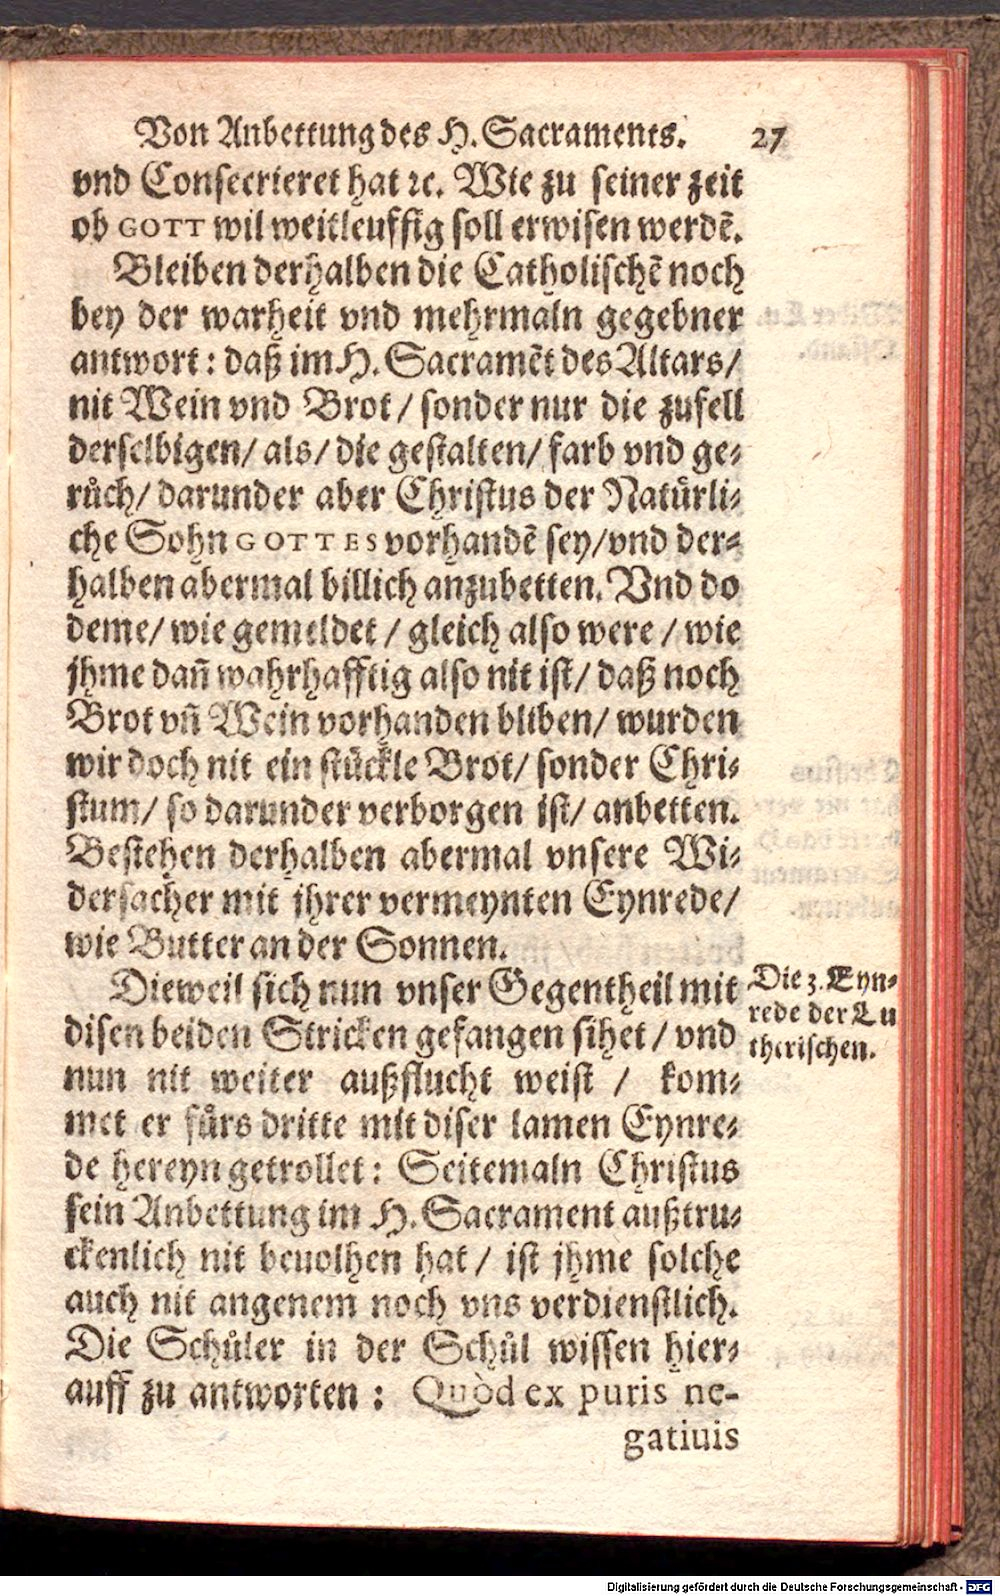 Von Anbettung des H. Sacraments. 27
vnd Consecrieret hat ꝛc. Wie zu seiner zeit
ob GOTT wil weitleuffig soll erwisen werdẽ.
Bleiben derhalben die Catholischẽ noch
bey der warheit vnd mehrmaln gegebner
antwort: daß im H. Sacramẽt des Altars/
nit Wein vnd Brot/ sonder nur die zufell
derselbigen/ als/ die gestalten/ farb vnd ge⸗
růch/ darunder aber Christus der Natürli⸗
che Sohn GOTTES vorhandẽ sey/ vnd der⸗
halben abermal billich anzubetten. Vnd do
deme/ wie gemeldet/ gleich also were/ wie
jhme dañ wahrhafftig also nit ist/ daß noch
Brot vñ Wein vorhanden bliben/ wurden
wir doch nit ein stückle Brot/ sonder Chri⸗
stum/ so darunder verborgen ist/ anbetten.
Bestehen derhalben abermal vnsere Wi⸗
dersacher mit jhrer vermeynten Eynrede/
wie Butter an der Sonnen.
Dieweil sich nun vnser Gegentheil mit
disen beiden Stricken gefangen sihet/ vnd
nun nit weiter außflucht weist/ kom⸗
met er fürs dritte mit diser lamen Eynre⸗
de hereyn getrollet: Seitemaln Christus
sein Anbettung im H. Sacrament außtru⸗
ckenlich nit beuolhen hat/ ist jhme solche
auch nit angenem noch vns verdienstlich.
Die Schůler in der Schůl wissen hier⸗
auff zu antworten: Quòd ex puris ne-
gatiuis
Die 3. Eyn⸗
rede der Lu
therischen.
Digitalisierung gefördert durch die Deutsche Forschungsgemeinschaft - DFG